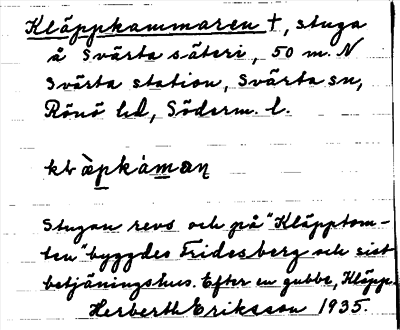 Kläppkammaren †, stuga
å Svärta säteri, 50 m. N
Svärta station, Svärta sn,
Rönö hd, Söderm. l.
Stugan revs och på "Kläpptom-
ten" byggdes Fridesberg och sist
betjäningshus. Efter en gubbe, Kläpp.
Herberth Eriksson 1935.